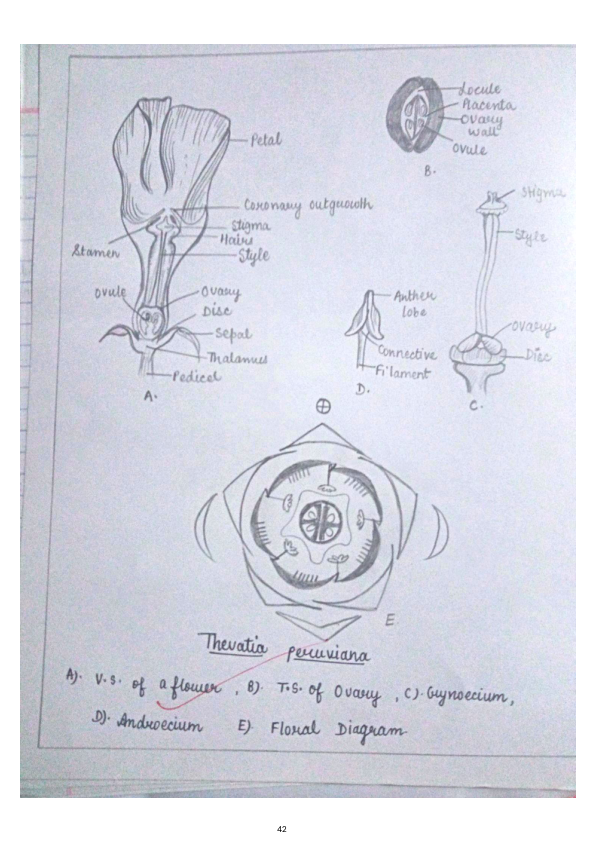 Petal
Coronary outgrowth
Stigma
Hairs
Style
Stamen
Ovule
Ovary
Disc
Sepal
Thalamus
Pedicel
A.
Locule
Placenta
Ovary
wall
Ovule
B.
Stigma
Style
Ovary
Disc
C.
Anther
lobe
Connective
Filament
D.
E.
Thevatia peruviana
A). V.S. of a flower, B). T.S. of Ovary, C). Gynoecium,
D). Androecium E) Floral Diagram
42